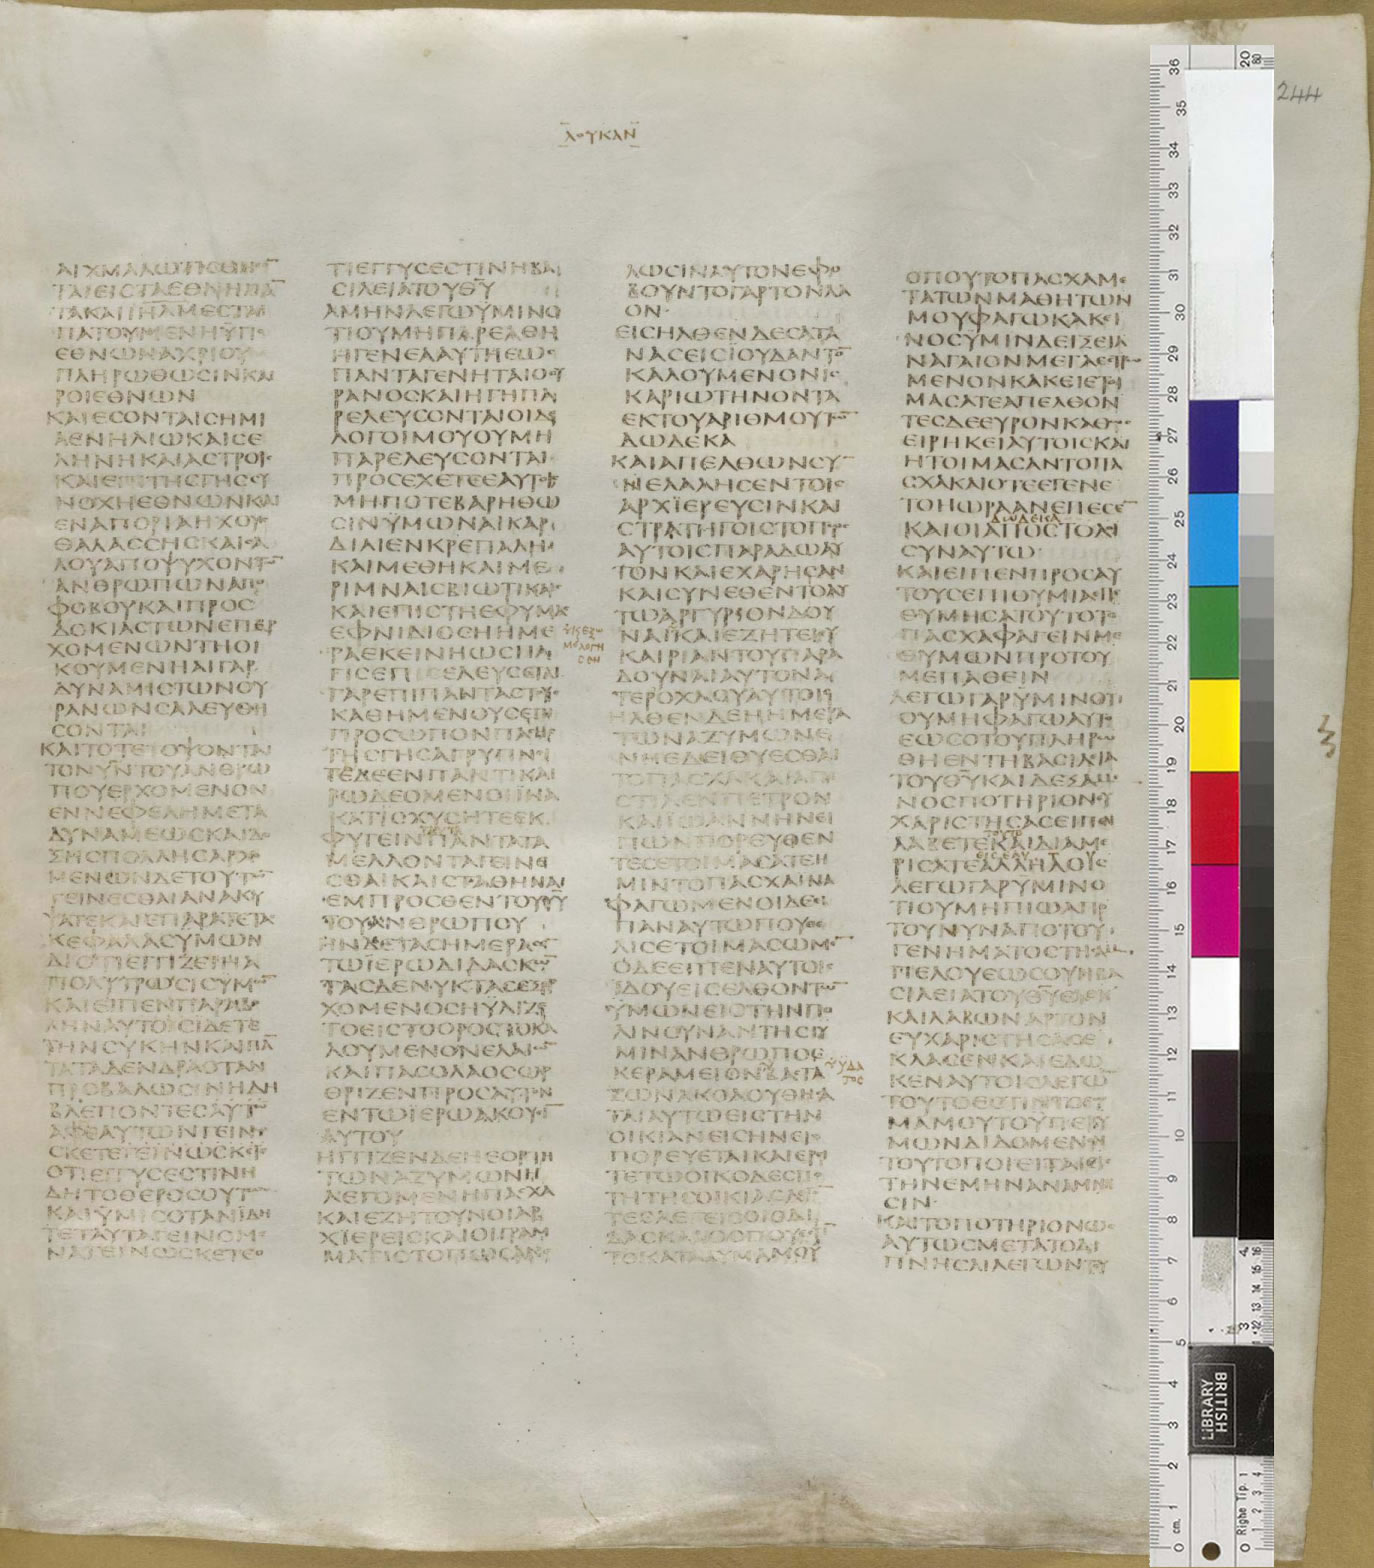 ΛΟΥΚΑΝ
244
ΑΙΧΜΑΛΩΤΙΣΘΗ
ΠΛΗΡΩΘΩϹΙΝΚΑΙ
ΡΟΙΕΘΝΩΝ
ΚΑΙΕϹΟΝΤΑΙϹΗΜΙ
ΑΕΝΗΛΙΩΚΑΙϹΕ
ΛΗΝΗΚΑΙΑϹΤΡΟΙϹ
ΚΑΙΕΠΙΤΗϹΓΗϹϹΥ
ΝΟΧΗΕΘΝΩΝΚΑΙ
ΕΝΑΠΟΡΙΑΗΧΟΥϹ
ΘΑΛΑϹϹΗϹΚΑΙϹΑ
ΛΟΥΑΠΟΨΥΧΟΝΤ
ΑΝΘΡΩΠΩΝΑΠΟ
ΦΟΒΟΥΚΑΙΠΡΟϹ
ΔΟΚΙΑϹΤΩΝΕΠΕΡ
ΧΟΜΕΝΩΝΤΗΟΙ
ΚΟΥΜΕΝΗΑΙΓΑΡ
ΔΥΝΑΜΙϹΤΩΝΟΥ
ΡΑΝΩΝϹΑΛΕΥΘΗ
ϹΟΝΤΑΙ
ΚΑΙΤΟΤΕΟΨΟΝΤΑΙ
ΤΟΝΥΝΤΟΥΑΝΘΡΩ
ΠΟΥΕΡΧΟΜΕΝΟΝ
ΕΝΝΕΦΕΛΗΜΕΤΑ
ΔΥΝΑΜΕΩϹΚΑΙΔΟ
ΞΗϹΠΟΛΛΗϹΑΡΧΟ
ΜΕΝΩΝΔΕΤΟΥΤΩ
ΓΕΙΝΕϹΘΑΙΑΝΑΚΥ
ΨΑΤΕΚΑΙΕΠΑΡΑΤΕΤΑϹ
ΚΕΦΑΛΑϹΥΜΩΝ
ΔΙΟΤΙΕΓΓΙΖΕΙΗΑ
ΠΟΛΥΤΡΩϹΙϹΥΜΩ
ΚΑΙΕΙΠΕΝΠΑΡΑΒΟ
ΛΗΝΑΥΤΟΙϹΙΔΕΤΕ
ΤΗΝϹΥΚΗΝΚΑΙΠΑ
ΤΑΤΑΔΕΝΔΡΑΟΤΑΝ
ΠΡΟΒΑΛΩϹΙΝΗΔΗ
ΒΛΕΠΟΝΤΕϹΑΥΤΩ
ΑΦΕΑΥΤΩΝΓΕΙΝΩ
ϹΚΕΤΕ
ΟΤΙΕΓΓΥϹΕϹΤΙΝΗ
ΔΗΤΟΘΕΡΟϹΟΥΤ
ΚΑΙΥΜΙϹΟΤΑΝΙΔΗ
ΤΕΤΑΥΤΑΓΕΙΝΟΜΕ
ΝΑΓΕΙΝΩϹΚΕΤΕΟ
ΤΙΕΓΓΥϹΕϹΤΙΝΗΒΑ
ϹΙΛΕΙΑΤΟΥΘΥ
ΑΜΗΝΛΕΓΩΥΜΙΝΟ
ΤΙΟΥΜΗΠΑΡΕΛΘΗ
ΗΓΕΝΕΑΑΥΤΗΕΩϹ
ΠΑΝΤΑΓΕΝΗΤΑΙΟΟΥ
ΡΑΝΟϹΚΑΙΗΓΗΠΑ
ΡΕΛΕΥϹΟΝΤΑΙΟΙΔΕ
ΛΟΓΟΙΜΟΥΟΥΜΗ
ΠΑΡΕΛΕΥϹΟΝΤΑΙ
ΠΡΟϹΕΧΕΤΕΕΑΥΤΟΙϹ
ΜΗΠΟΤΕΒΑΡΗΘΩ
ϹΙΝΥΜΩΝΑΙΚΑΡ
ΔΙΑΙΕΝΚΡΕΠΑΛΗ
ΚΑΙΜΕΘΗΚΑΙΜΕ
ΡΙΜΝΑΙϹΒΙΩΤΙΚΑΙϹ
ΚΑΙΕΠΙϹΤΗΕΦΥΜΑϹ
ΕΦΝΙΔΙΟϹΗΗΜΕ
ΡΑΕΚΕΙΝΗΩϹΠΑ
ΓΙϹΕΠΙϹΕΛΕΥϹΕΤΑΙ
ΓΑΡΕΠΙΠΑΝΤΑϹΤΟΥϹ
ΚΑΘΗΜΕΝΟΥϹΕΠΙ
ΠΡΟϹΩΠΟΝΠΑϹΗϹ
ΤΗϹΓΗϹΑΓΡΥΠΝΙ
ΤΕΔΕΕΝΠΑΝΤΙΚΑΙ
ΡΩΔΕΟΜΕΝΟΙΙΝΑ
ΚΑΤΙϹΧΥϹΗΤΕΕΚ
ΦΥΓΕΙΝΠΑΝΤΑΤΑ
ΜΕΛΛΟΝΤΑΓΕΙΝΕ
ϹΘΑΙΚΑΙϹΤΑΘΗΝΑΙ
ΕΜΠΡΟϹΘΕΝΤΟΥΥΥ
ΤΟΥΑΝΘΡΩΠΟΥ
ΗΝΔΕΤΑϹΗΜΕΡΑϹ
ΤΩΙΕΡΩΔΙΔΑϹΚΩ
ΤΑϹΔΕΝΥΚΤΑϹΕΞΕΡ
ΧΟΜΕΝΟϹΗΥΛΙΖΕ
ΤΟΕΙϹΤΟΟΡΟϹΤΟΚΑ
ΛΟΥΜΕΝΟΝΕΛΑΙΩ
ΚΑΙΠΑϹΟΛΑΟϹΩΡ
ΘΡΙΖΕΝΠΡΟϹΑΥΤΟΝ
ΕΝΤΩΙΕΡΩΑΚΟΥΕΙ
ΑΥΤΟΥ
ΗΓΓΙΖΕΝΔΕΗΕΟΡΤΗ
ΤΩΝΑΖΥΜΩΝΗ
ΛΕΓΟΜΕΝΗΠΑϹΧΑ
ΚΑΙΕΖΗΤΟΥΝΟΙΑΡ
ΧΙΕΡΕΙϹΚΑΙΟΙΓΡΑΜ
ΜΑΤΙϹΤΟΠΩϹΑΝΕ
ΛΩϹΙΝΑΥΤΟΝΕΦΟ
ΒΟΥΝΤΟΓΑΡΤΟΝΛΑ
ΟΝ
ΕΙϹΗΛΘΕΝΔΕϹΑΤΑ
ΝΑϹΕΙϹΙΟΥΔΑΝΤ
ΚΑΛΟΥΜΕΝΟΝΙϹ
ΚΑΡΙΩΤΗΝΟΝΤΑ
ΕΚΤΟΥΑΡΙΘΜΟΥΤ
ΔΩΔΕΚΑ
ΚΑΙΑΠΕΛΘΩΝϹΥ
ΝΕΛΑΛΗϹΕΝΤΟΙϹ
ΑΡΧΙΕΡΕΥϹΙΝΚΑΙ
ϹΤΡΑΤΗΓΟΙϹΤΟΠΩϹ
ΑΥΤΟΙϹΠΑΡΑΔΩΑΥ
ΤΟΝΚΑΙΕΧΑΡΗϹΑΝ
ΚΑΙϹΥΝΕΘΕΝΤΟΑΥ
ΤΩΑΡΓΥΡΙΟΝΔΟΥ
ΝΑΙΚΑΙΕΖΗΤΕΙΕΥ
ΚΑΙΡΙΑΝΤΟΥΠΑΡΑ
ΔΟΥΝΑΙΑΥΤΟΝΑ
ΤΕΡΟΧΛΟΥΑΥΤΟΙϹ
ΗΛΘΕΝΔΕΗΗΜΕΡΑ
ΤΩΝΑΖΥΜΩΝΕ
ΝΗΕΔΕΙΘΥΕϹΘΑΙ
ΤΟΠΑϹΧΑΚΑΙΑΠΕ
ϹΤΙΛΕΝΠΕΤΡΟΝ
ΚΑΙΙΩΑΝΝΗΝΕΙ
ΠΩΝΠΟΡΕΥΘΕΝ
ΤΕϹΕΤΟΙΜΑϹΑΤΕΗ
ΜΙΝΤΟΠΑϹΧΑΙΝΑ
ΦΑΓΩΜΕΝΟΙΔΕΙ
ΠΑΝΑΥΤΩΠΟΥΘΕ
ΛΙϹΕΤΟΙΜΑϹΩΜΕ
ΟΔΕΕΙΠΕΝΑΥΤΟΙϹ
ΙΔΟΥΕΙϹΕΛΘΟΝΤΩ
ΥΜΩΝΕΙϹΤΗΝΠΟ
ΛΙΝϹΥΝΑΝΤΗϹΕΙΥ
ΜΙΝΑΝΘΡΩΠΟϹ
ΚΕΡΑΜΕΙΟΝΒΑϹΤΑ
ΖΩΝΑΚΟΛΟΥΘΗϹΑ
ΤΑΙΑΥΤΩΕΙϹΤΗΝ
ΟΙΚΙΑΝΕΙϹΗΝΕΙϹ
ΠΟΡΕΥΕΤΑΙΚΑΙΕΡΙ
ΤΕΤΩΟΙΚΟΔΕϹΠΟ
ΤΗΤΗϹΟΙΚΙΑϹΛΕΓ
ΤΕϹΛΕΓΕΙϹΟΙΟΔΙ
ΔΑϹΚΑΛΟϹΠΟΥΕϹΤΙ
ΤΟΚΑΤΑΛΥΜΑΜΟΥ
ΟΠΟΥΤΟΠΑϹΧΑΜΕ
ΤΑΤΩΝΜΑΘΗΤΩΝ
ΜΟΥΦΑΓΩΚΑΚΕΙ
ΝΟϹΥΜΙΝΔΕΙΞΕΙΑ
ΝΑΓΑΙΟΝΜΕΓΑΕϹΤΡΩ
ΜΕΝΟΝΚΑΚΕΙΕΤΟΙ
ΜΑϹΑΤΕΑΠΕΛΘΟΝ
ΤΕϹΔΕΕΥΡΟΝΚΑΘΩϹ
ΕΙΡΗΚΕΙΑΥΤΟΙϹΚΑΙ
ΗΤΟΙΜΑϹΑΝΤΟΠΑ
ϹΧΑΚΑΙΟΤΕΕΓΕΝΕ
ΤΟΗΩΡΑΑΝΕΠΕϹΕ
ΔΩΔΕΚΑ
ΚΑΙΟΙΑΠΟϹΤΟΛΟΙ
ϹΥΝΑΥΤΩ
ΚΑΙΕΙΠΕΝΠΡΟϹΑΥ
ΤΟΥϹΕΠΙΘΥΜΙΑΕΠΕ
ΘΥΜΗϹΑΤΟΥΤΟΤΟ
ΠΑϹΧΑΦΑΓΕΙΝΜΕ
ΘΥΜΩΝΠΡΟΤΟΥ
ΜΕΠΑΘΕΙΝ
ΛΕΓΩΓΑΡΥΜΙΝΟΤΙ
ΟΥΜΗΦΑΓΩΑΥΤΟ
ΕΩϹΟΤΟΥΠΛΗΡΩ
ΘΗΕΝΤΗΒΑϹΙΛΕΙΑ
ΤΟΥΘΥΚΑΙΔΕΞΑΜΕ
ΝΟϹΠΟΤΗΡΙΟΝΕΥ
ΧΑΡΙϹΤΗϹΑϹΕΙΠΕΝ
ΛΑΒΕΤΕΚΑΙΔΙΑΜΕ
ΡΙϹΑΤΕΑΛΛΗΛΟΙϹ
ΛΕΓΩΓΑΡΥΜΙΝΟ
ΤΙΟΥΜΗΠΙΩΑΠΟ
ΤΟΥΝΥΝΑΠΟΤΟΥ
ΓΕΝΗΜΑΤΟϹΤΗϹΑΜ
ΠΕΛΟΥΕΩϹΟΥΗΒΑ
ϹΙΛΕΙΑΤΟΥΘΥΕΛΘΗ
ΚΑΙΛΑΒΩΝΑΡΤΟΝ
ΕΥΧΑΡΙϹΤΗϹΑϹΕ
ΚΛΑϹΕΝΚΑΙΕΔΩ
ΚΕΝΑΥΤΟΙϹΛΕΓΩ
ΤΟΥΤΟΕϹΤΙΝΤΟϹΩ
ΜΑΜΟΥΤΟΥΠΕΡΥ
ΜΩΝΔΙΔΟΜΕΝΟΝ
ΤΟΥΤΟΠΟΙΕΙΤΑΙΕΙϹ
ΤΗΝΕΜΗΝΑΝΑΜΝΗ
ϹΙΝ
ΚΑΙΤΟΠΟΤΗΡΙΟΝΩϹ
ΑΥΤΩϹΜΕΤΑΤΟΔΙ
ΠΝΗϹΑΙΛΕΓΩΝΤΟΥ
BRITISH
LIBRARY